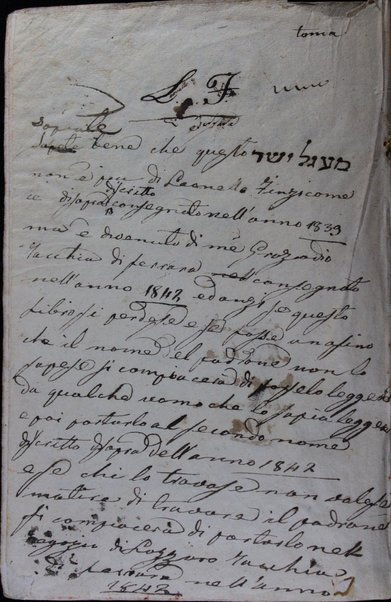 toma
L. F.
Sapiate
sapete bene che questo מעגל ישר
non è piu di Leone
disopra consegnato nell'anno 1839
ma è divenuto di me Graziadio
Vacchia di ferrara consegnato
nell'anno 1842 ed anzi se questo
libro si perdese e se fose un asino
che il nome del padrone non lo
sapese si compiacerà di farselo leggere
da qualche uomo che lo sapia leggere
e poi portarlo al secondo nome
descritto disopra dell'anno 1842
e se chi lo trovase non volese
di trovare il padrone
si compiacerà di portarlo nel
di Lazzaro Vacchia
di ferrara nell'anno
1842